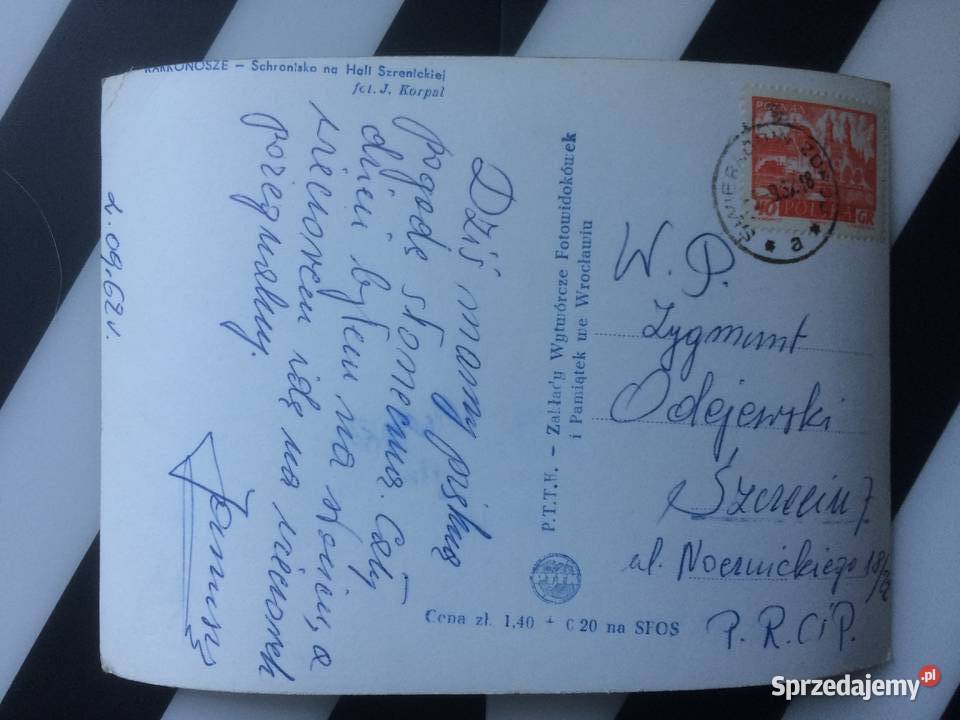 KARKONOSZE – Schronisko na Hali Szrenickiej
fot. J. Korpal
Dziś mamy piękną
pogodę słoneczna. Cały
dzień byłem na słońcu, a
wieczorem idę na wieczorek
pożegnalny.
Janusz
2.09.62r.
P.T.T.K. – Zakłady Wytwórcze Fotowidokówek
i Pamiątek we Wrocławiu
Cena zł. 1,40 + 0.20 na SFOS
POZNAŃ
40 POLSKA GR
* a *
W. P.
Zygmunt
Odejewski
Szczecin 7
ul.
P. R. C i P.
Sprzedajemy.pl